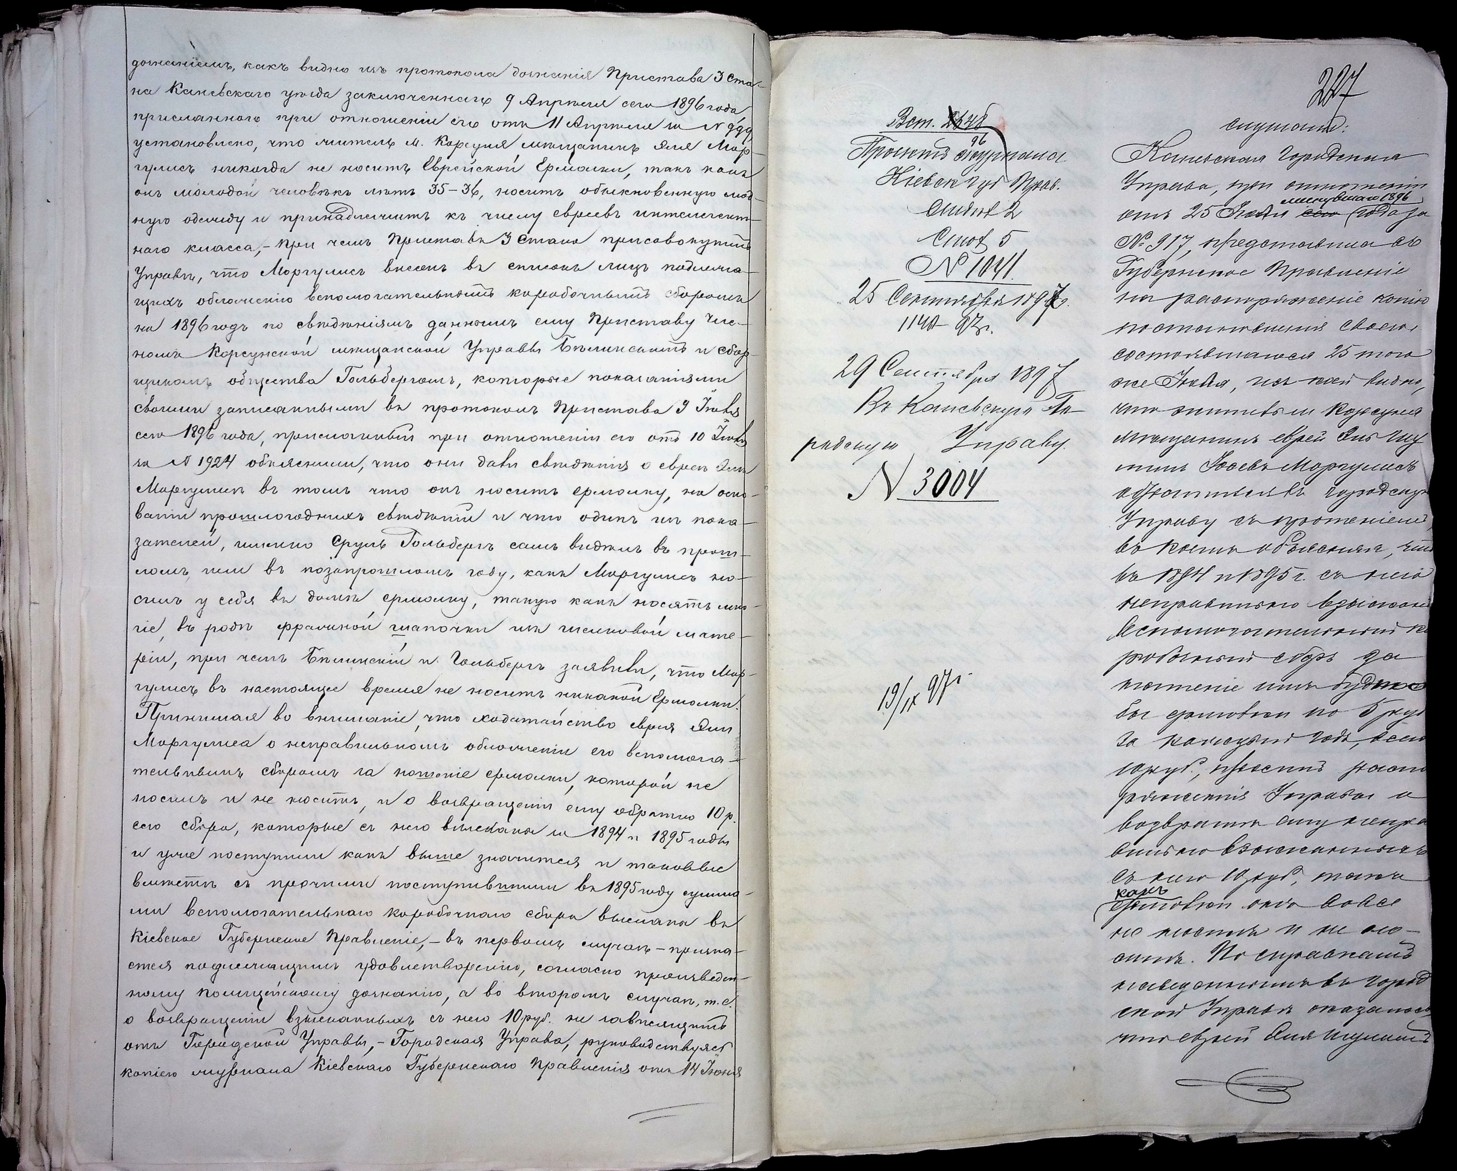 дознаніемъ, какъ видно изъ протокола дознанія Пристава 3 Ста-
на Каневскаго уѣзда заключеннаго 9 Апрѣля сего 1896 года
присланнаго при отношеніи его отъ 11 Апрѣля за № 999
установлено, что житель м. Корсуня мѣщанинъ Эля Мор-
гулисъ никогда не носитъ Еврейской Ермолки, такъ какъ
онъ молодой человѣкъ лѣтъ 35-36, носитъ обыкновенную мод-
ную одежду и принадлежитъ къ числу евреевъ интелигент-
наго класса,- при чемъ Приставъ 3 Стана присовокупилъ
Управѣ, что Моргулисъ внесенъ въ списокъ лицъ подлежа-
щихъ обложенію вспомогательнымъ коробочнымъ сборомъ
на 1896 годъ по свѣдѣніямъ даннымъ ему Приставу чле-
номъ Корсунской мѣщанской Управы Бѣлинскимъ и сбор-
щикомъ общества Гольбергомъ, которые показаніями
своими записанными въ протоколъ Пристава 9 Іюня
сего 1896 года, присланный при отношеніи его отъ 10 Іюня
за № 1924 объяснили, что они дали свѣдѣнія о евреѣ Эли
Моргулисѣ въ томъ что онъ носитъ ермолку, на осно-
ваніи прошлогоднихъ свѣдѣній и что одинъ изъ пока-
зателей, именно Сруль Гольбергъ самъ видѣлъ въ прош-
ломъ или въ позапрошломъ году, какъ Моргулисъ но-
силъ у себя въ домѣ ермолку, такую какъ носятъ мно-
гіе, въ родѣ фрачной шапочки изъ шелковой мате-
ріи, при чемъ Бѣлинскій и Гольбергъ заявили, что Мор-
гулисъ въ настоящее время не носитъ никакой Ермолки.
Принимая во вниманіе, что ходатайство еврея Эли
Моргулиса о неправильномъ обложеніи его вспомога-
тельнымъ сборомъ за ношеніе ермолки, которой не
носилъ и не носитъ, и о возвращеніи ему обратно 10 р.
сего сбора, которые съ него взысканы за 1894 и 1895 годы
и уже поступили какъ выше значится и таковые
вмѣстѣ съ прочими поступившими въ 1895 году сумма-
ми вспомогательнаго коробочнаго сбора высланы въ
Кіевское Губернское Правленіе,- въ первомъ случаѣ - призна-
ется подлежащимъ удовлетворенію, согласно произведен-
ному полицейскому дознанію, а во второмъ случаѣ, т. е.
о возвращеніи взысканныхъ съ него 10 руб. не зависящимъ
отъ Городской Управы,- Городская Управа, руководствуясь
копіею журнала Кіевскаго Губернскаго Правленія отъ 14 Іюня
227
Вст.
96
Проектъ журнала
Кіевск. Губ. Прав.
Отдѣл. 2
Стол. 5
№ 1041
25 Сентября 1897 г.
1140-97 г.
29 Сентября 1897
Въ Каневскую Го-
родскую Управу.
№ 3004
19/IX 97 г.
слушали:
Каневская Городская
Управа, при отношеніи
минувшаго 1896
отъ 25 Іюля сего года за
№ 917, представила въ
Губернское Правленіе
на распоряженіе копію
постановленія своего,
состоявшагося 25 того
же Іюля, изъ коей видно,
что житель м. Корсуня
мѣщанинъ еврей Эль Иц
Моргулисъ
обратился въ городскую
Управу съ прошеніемъ,
въ коемъ объяснилъ, что
въ 1894 и 1895 г. съ него
неправильно взысканъ
вспомогательный ко
робочный сборъ за
ношеніе имъ будто
бы ермолки по 5 руб
за каждый годъ, всего
10 руб., просилъ распо
ряженія Управы о
возвратѣ ему непра
вильно взысканныхъ
съ него 10 руб., такъ
какъ
ермолки онъ вовсе
не носилъ и не но-
ситъ. По справкамъ
наведеннымъ въ Город
ской Управѣ оказалось
что еврей Эля Ицковъ